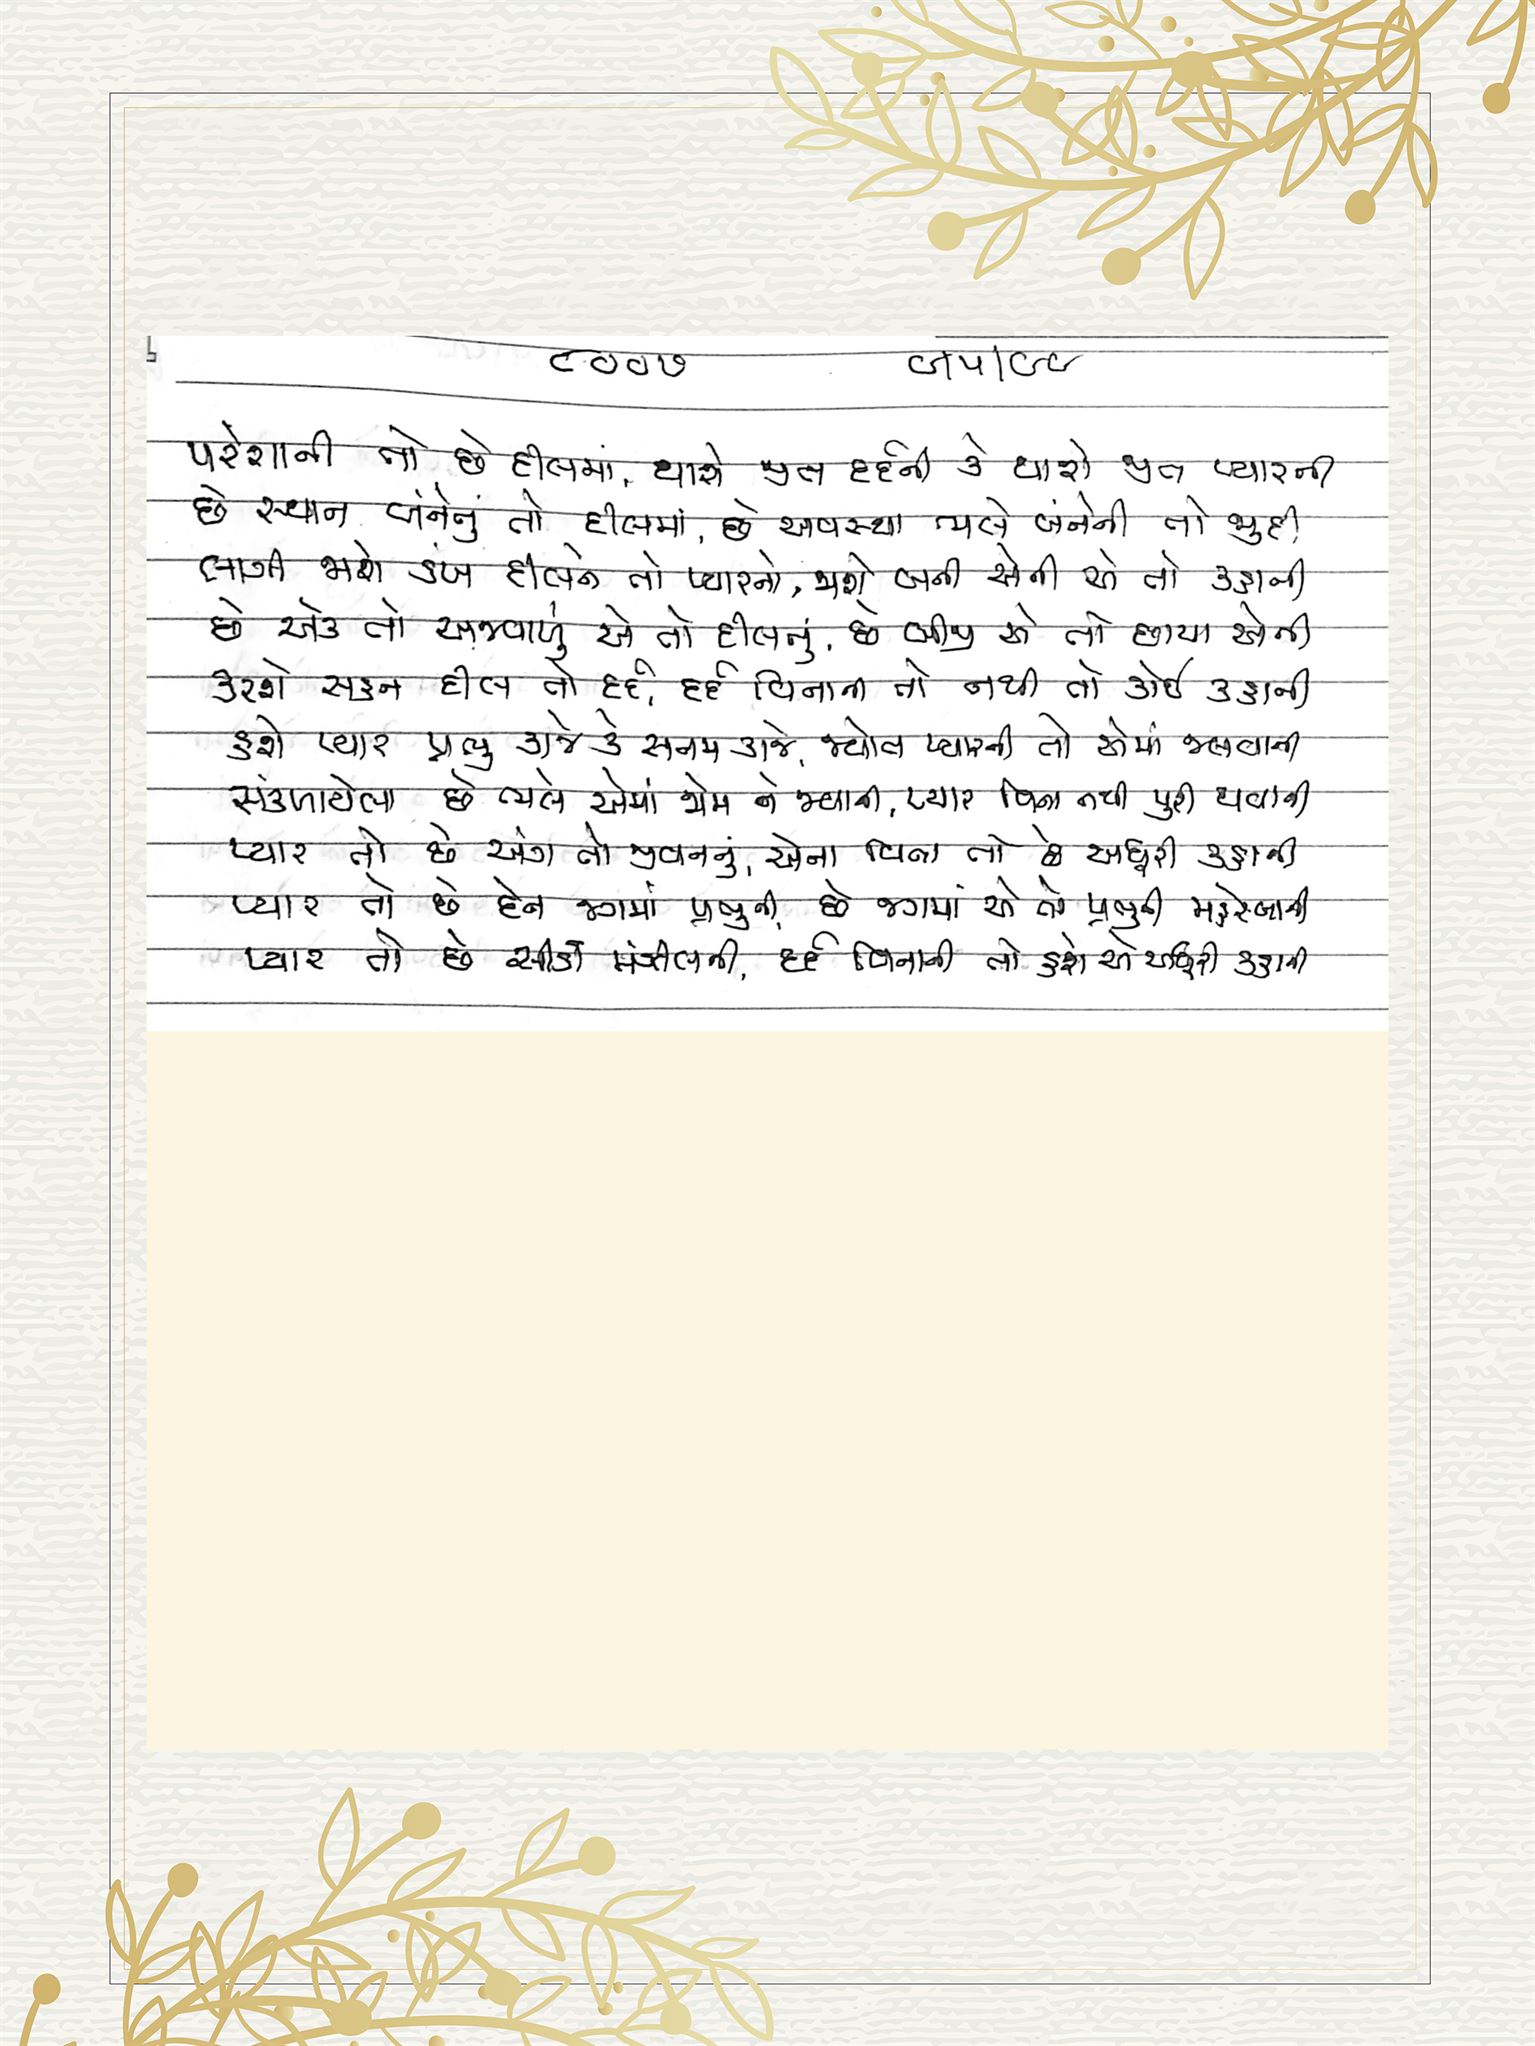 ૮૦૦૭
પરેશાની તો છે દીલમાં, થાશે જીત દર્દની કે થાશે જીત પ્યારની
છે સ્થાન બંનેનું તો દીલમાં, છે અવસ્થા ભલે બંનેની તો જુદી
લાગી જાશે ડંખ દીલને તો પ્યારનો, જાશે બની એની એ તો કહાની
છે એક તો અજવાળું એ તો દીલનું, છે બીજી એ તો છાયા એની
કરશે સહન દીલ તો દર્દ, દર્દ વિનાની તો નથી તો કોઈ કહાની
હશે પ્યાર પ્રભુ કાજે કે સનમ કાજે, જ્યોત પ્યારની તો એમાં જલવાની
સંકળાયેલા છે ભલે એમાં પ્રેમ ને ધ્યાન, પ્યાર વિના નથી પુરી થવાની
પ્યાર તો છે અંગ તો જીવનનું, એના વિના તો છે અધુરી કહાની
પ્યાર તો છે દેન જગમાં પ્રભુની, છે જગમાં એ તો પ્રભુની મહેરબાની
પ્યાર તો છે સીડી મંઝીલની, દર્દ વિનાની તો હશે એ અધુરી કહાની